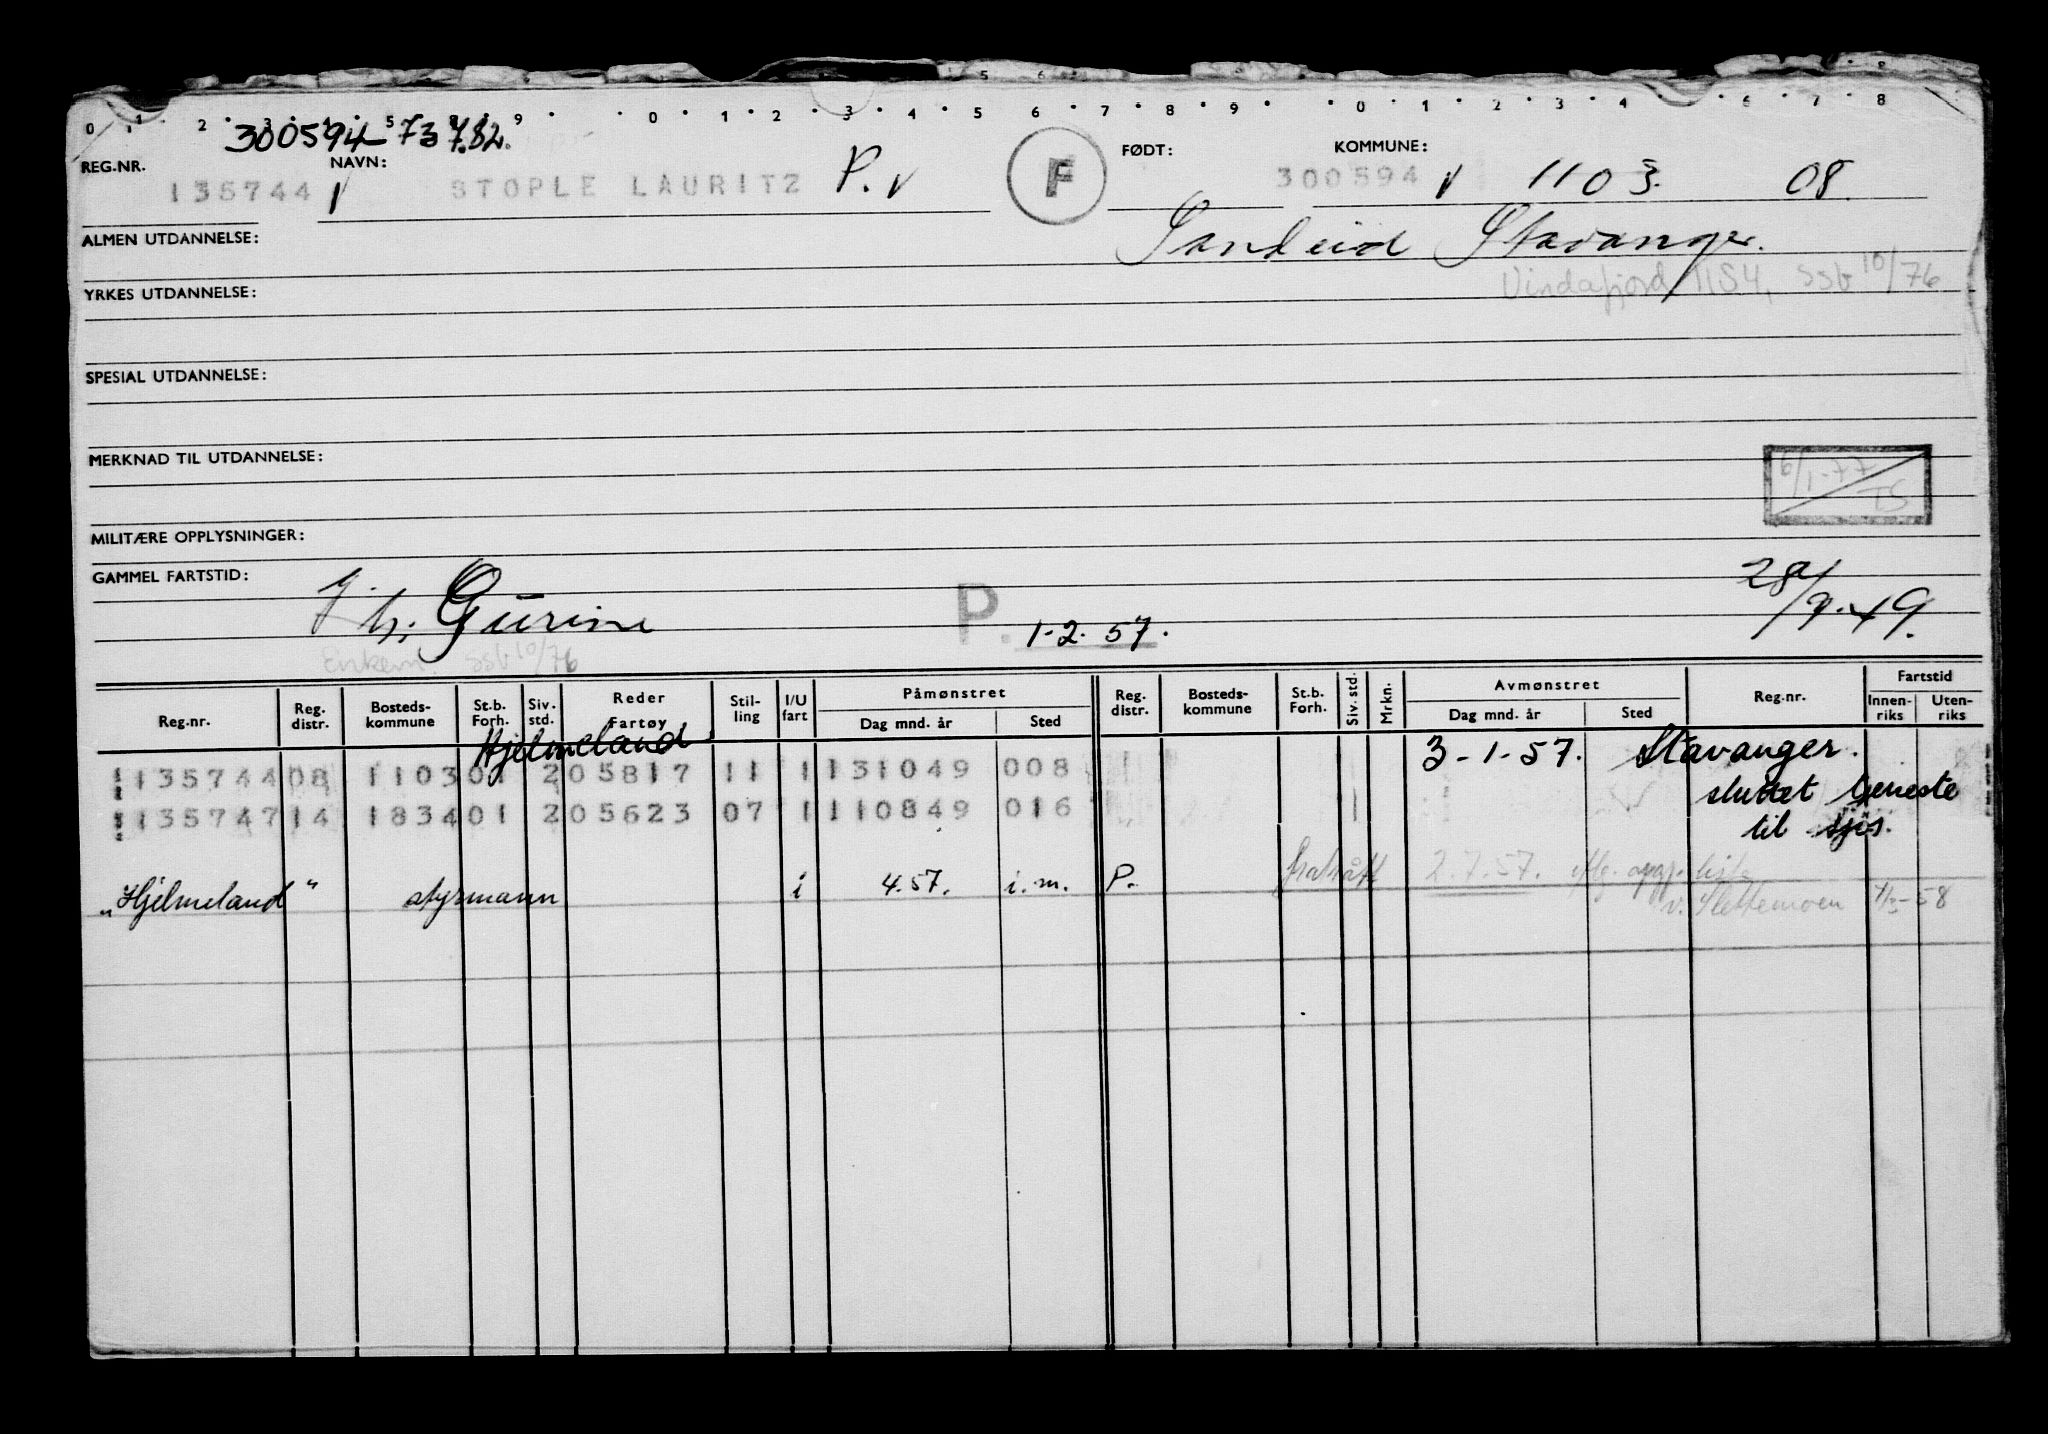 0 1 2 3 4 5 8 9 0 1 2 3 4 5 6 7 8 9 0 1 2 3 4 6 7 8
300594 73782.
REG.NR. NAVN: FØDT: KOMMUNE:
135744 STOPLE LAURITZ P. F 300594 1103. 08.
ALMEN UTDANNELSE: Sandeid Stavanger.
YRKES UTDANNELSE: Vindafjord 1154, SSb 10/76
SPESIAL UTDANNELSE:
MERKNAD TIL UTDANNELSE:
6/1-77 TS
MILITÆRE OPPLYSNINGER:
GAMMEL FARTSTID:
Gurine P. 1-2. 57. 28/9-49.
SSb 10/76
Reg.nr. Reg. distr. Bosteds-kommune St.b. Forh. Siv. std. Reder Fartøy Stil-ling I/U fart Påmønstret Dag mnd. år Sted Reg. distr. Bosteds-kommune St.b. Forh. Siv. std. Mrkn. Avmønstret Dag mnd. år Sted Reg.nr. Fartstid Innen-riks Uten-riks
Hjelmeland 3-1-57. Stavanger.
135744 08 1103 01 2 05817 11 1 131049 008 sluttet teneste
135747 14 1834 01 2 05623 07 1 110849 016 til sjøs.
"Hjelmeland" styrmann i 4.57. i.m. P. fratrått 2.7.57. iflg. oppg. liste
v. Slettemoen 1/2-58